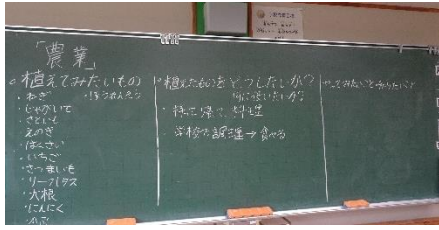 「農業」
○植えてみたいもの
・ねぎ ・ほうれんそう
・じゃがいも
・さといも
・えのき
・はくさい
・いちご
・さつまいも
・リーフレタス
・大根
・にんにく
植えたものをどうしたいか?
何に使いたいか?
・持って帰って、料理
学校で調理→食べる
やってみたいこと